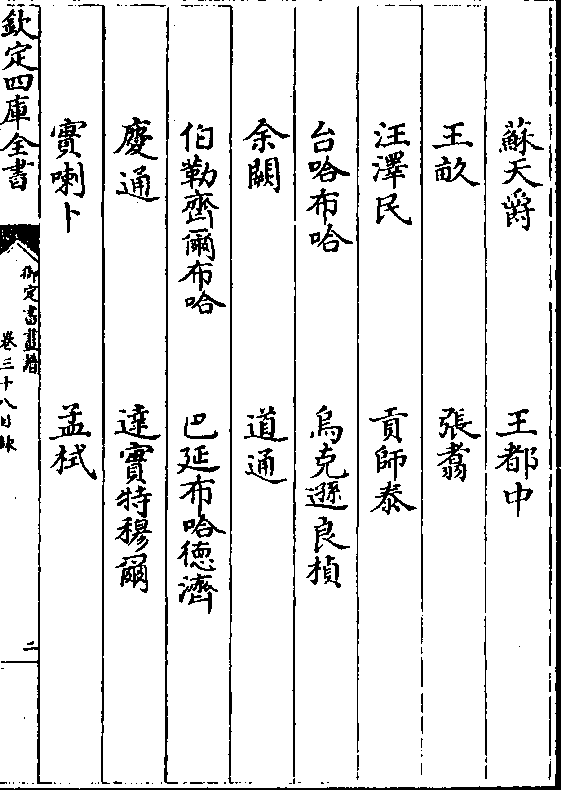 蘇天爵 王都中
王畝 張翥
汪澤民 貢師泰
台哈布哈 烏克遜良楨
余闕 道通
伯勒齊爾布哈 巴延布哈德濟
慶通 達實特穆爾
實喇卜 孟栻
欽定四庫全書
御定書畫譜
卷三十八目錄
二